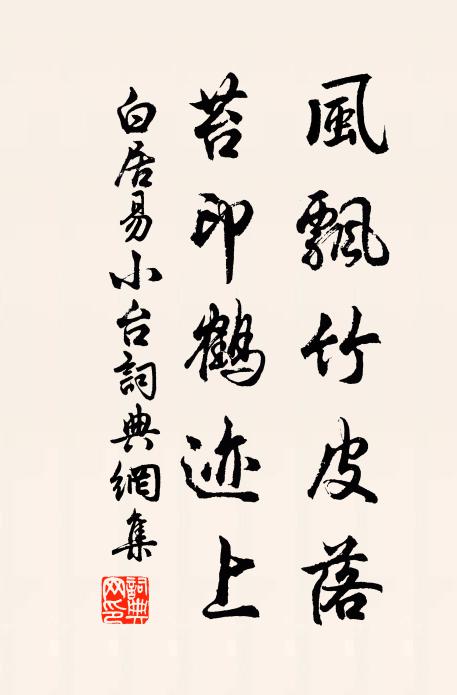 風飄竹皮落
苔印鶴迹上
白居易小台詞典網集
詞典網印